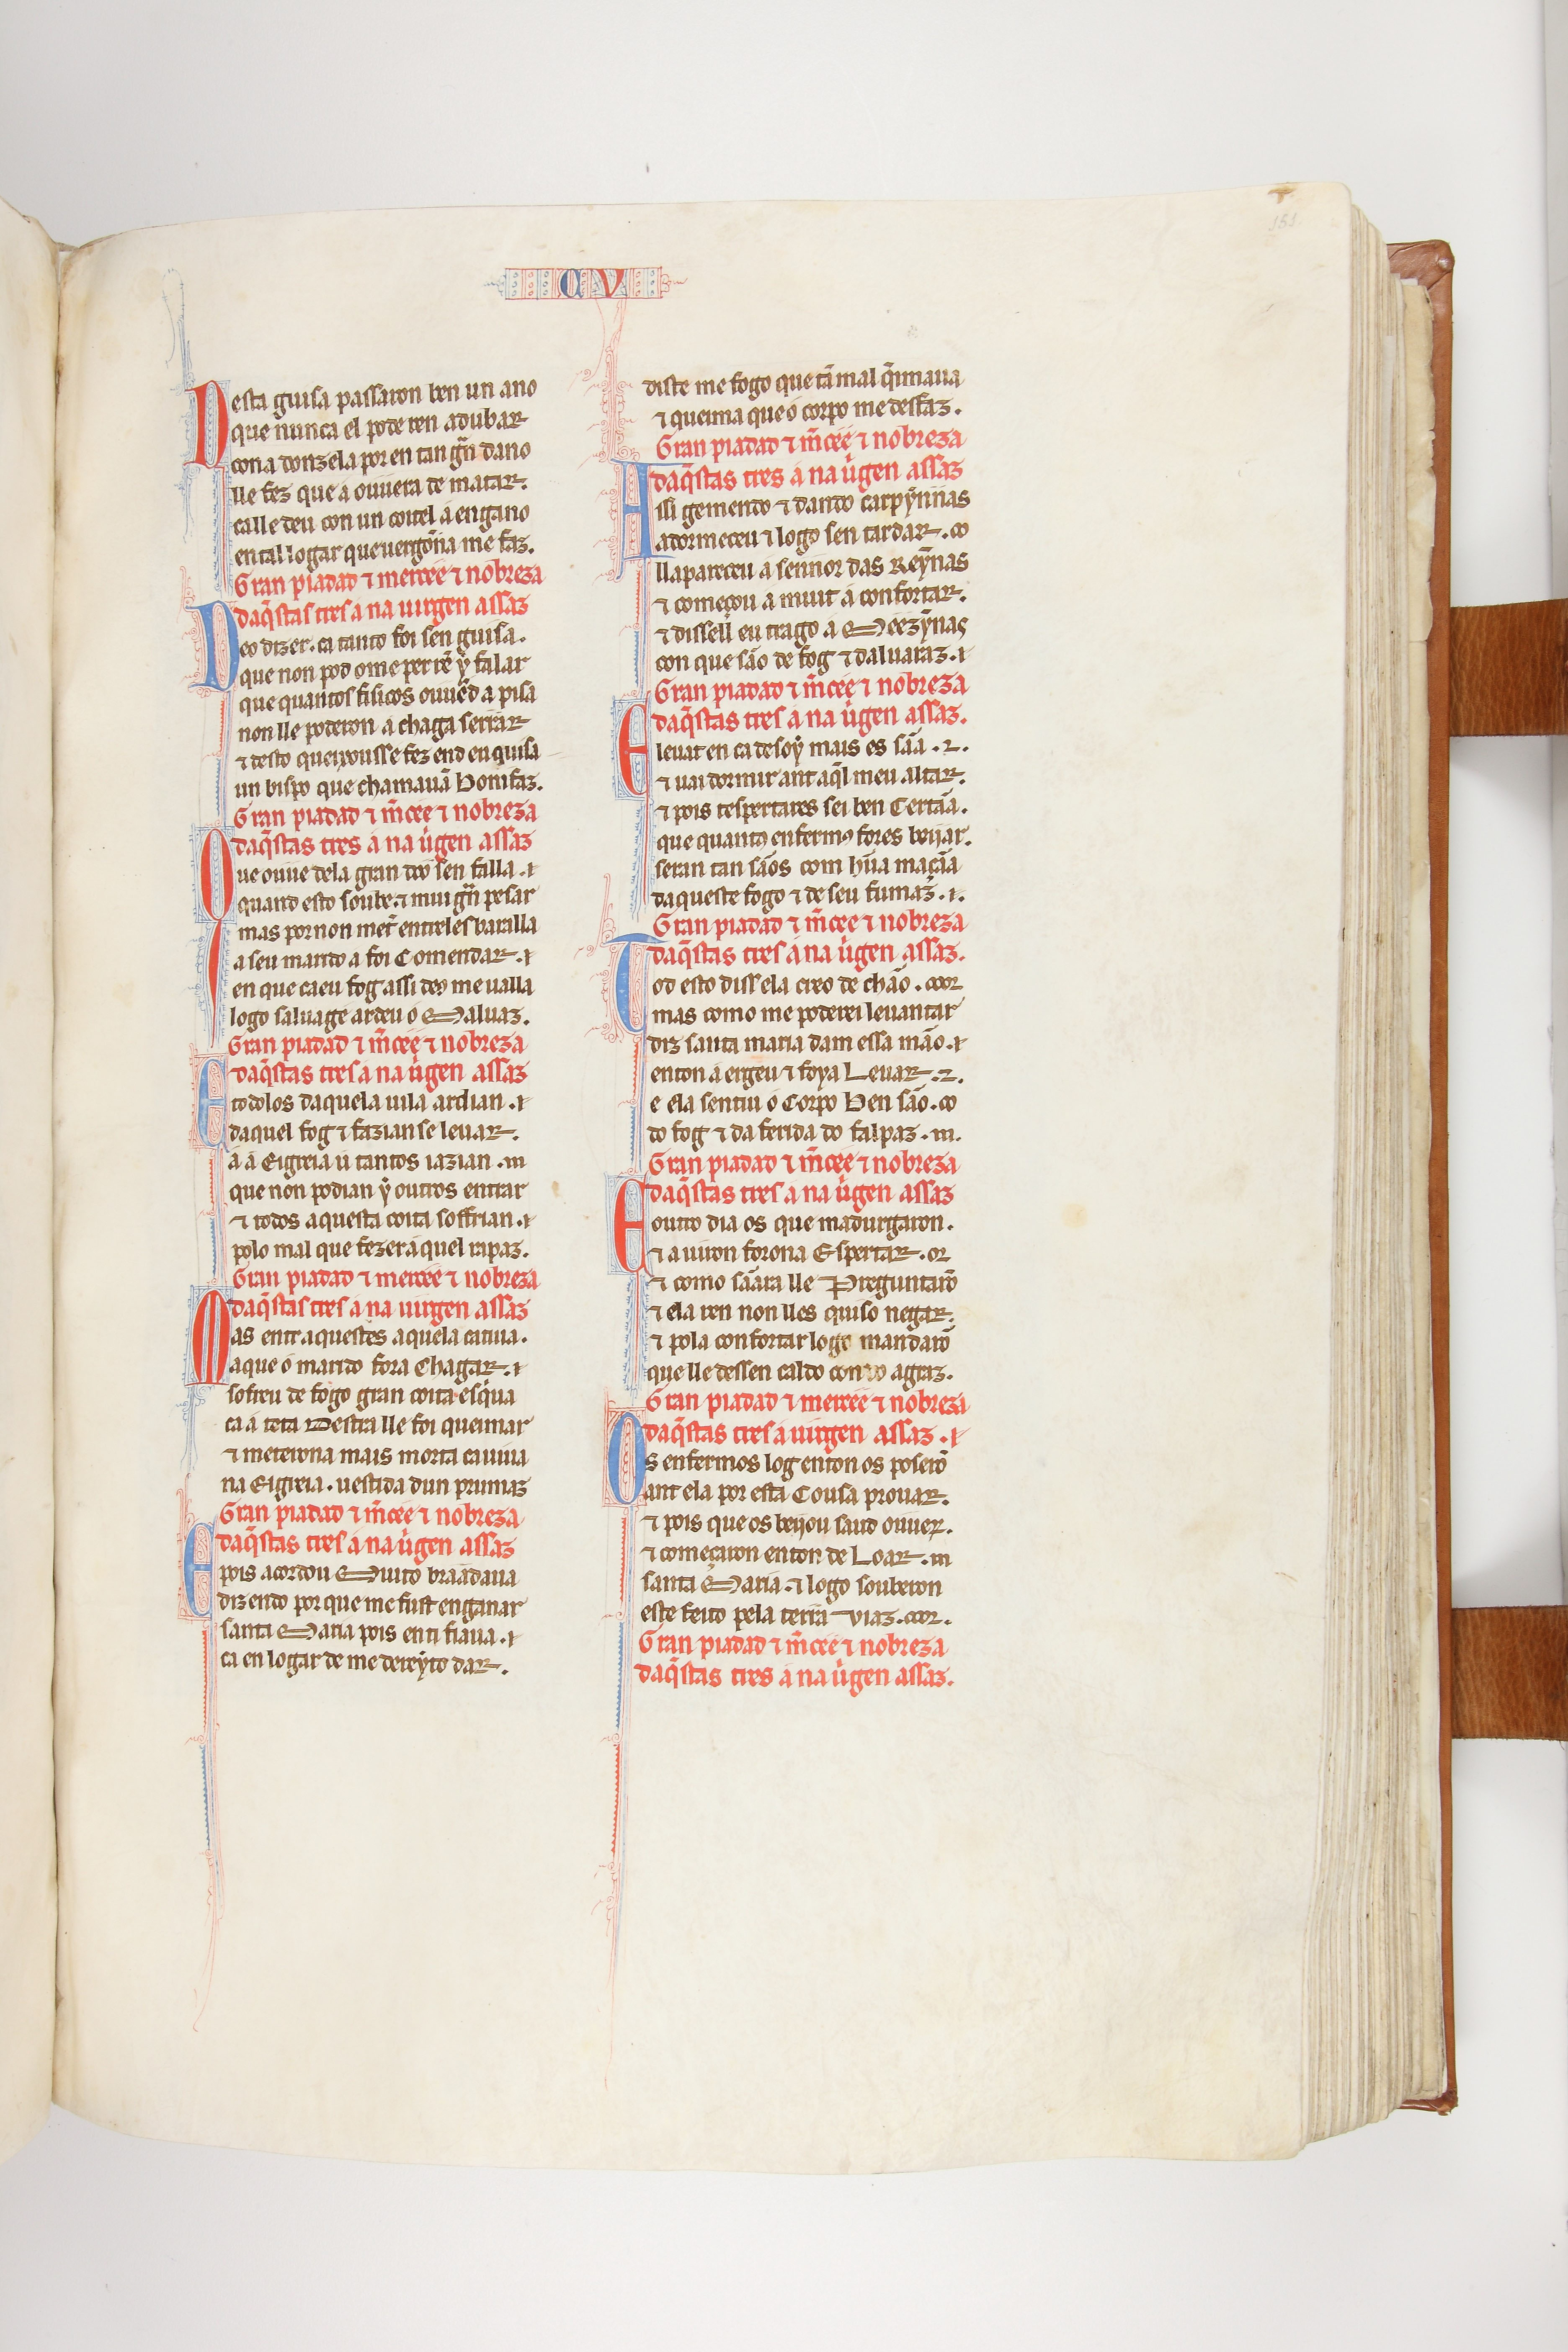 151
CV
Desta guisa passaron ben un ano
que nunca el pode ren adubar
cona donzela por en tan gn̄ dano
lle fez que á ouuera de matar.
calle deu con un coitel á engano
en tal logar que uergõna me faz.
Gran piadad ⁊ mercee ⁊ nobreza
daq̄stas tres á na uirgen assaz
Deo dizer. ca tanto foi sen guisa.
que non pod ome per rẽ ẏ falar
que quantos fisicos ouuẽd a pisa
non lle poderon a chaga serrar
⁊ desto queixousse fez end enquisa
un bispo que chamauã Bonifaz.
Gran piadad ⁊ m̃cee ⁊ nobreza
daq̄stas tres á na ùgen assaz
Que ouue dela gran doo sen falla. ⁊
quand esto soube. ⁊ mui gñ pesar
mas por non met̃ entreles baralla
a seu marido a foi Comendar. ⁊
en que caeu fog assi deꝯ me ualla
logo saluage ardeu ó Maluaz.
Gran piadad ⁊ m̃cee ⁊ nobreza
daq̄stas tres a na ùgen assaz
E todolos daquela uila ardian. ⁊
daquel fog ⁊ fazian se leuar.
á á Eigreia ú tantos iazian. m
que non podian ẏ outros entrar
⁊ todos aquesta coita soffrian. ⁊
polo mal que fezera quel rapaz.
Gran piadad ⁊ mercee ⁊ nobreza
daq̄stas tres á na uirgen assaz
Mas entraquestes aquela catiua.
aque ó marido fora Chagar. ⁊
sofreu de fogo gran coita esq̇ua
ca á teta Destra lle foi queimar
⁊ meterona mais morta ca uiua
na Eigreia. uestida dun prumaz
Gran piadad ⁊ m̃cee ⁊ nobreza
daq̄stas tres á na ùgen assaz
E pois acordou Muito braadaua
dizendo por que me fust enganar
santa Maria pois en ti fiaua. ⁊
ca en logar de me dereẏto dar.
diste me fogo que tã mal q̄imaua
⁊ queima que ó corpo me desfaz.
Gran piadad ⁊ m̃cee ⁊ nobreza
daq̄stas tres á na ùgen assaz
Assi gemendo ⁊ dando carpẏnnas
adormeceu ⁊ logo sen tardar. co
llapareceu á sennor das Reẏnas
⁊ começou a muit á confortar.
⁊ dissell eu trago á Meezẏnas
con que são de fog ⁊ daluaraz. ⁊
Gran piadad ⁊ m̃cee ⁊ nobreza
daq̄stas tres á na ùgen assaz.
E leuat en ca desoẏ mais es sãa. 2.
⁊ uai dormir ant aq̄l meu altar.
⁊ pois tespertares sei ben Certãa.
que quantꝯ enfermꝯ fores beijar.
seran tan sãos com hũa maçãa
daqueste fogo ⁊ de seu fumaz. ⁊.
Gran piadad ⁊ m̃cee ⁊ nobreza
daq̄stas tres á na ùgen assaz.
Tod esto diss ela creo de chão.
mas como me poderei leuantar
diz santa maria dam essa mão. ⁊
enton á ergeu ⁊ foya Leuar. 2.
e ela sentiu ó Corpo Ben são. co
do fog ⁊ da ferida do falpaz. m.
Gran piadad ⁊ m̃cee ⁊ nobreza
daq̄stas tres á na ùgen assaz
E outro dia os que madurgaron.
⁊ a uiron forona Espertar. or
⁊ como sãara lle Preguntarõ
⁊ ela ren non lles quiso negar.
⁊ pola confortar logo mandarõ
que lle dessen caldo con do agraz.
Gran piadad ⁊ mercee ⁊ nobreza
daq̄stas tres á uirgen assaz. ⁊
Os enfermos log enton os poserõ
ant ela por esta Cousa prouar.
⁊ pois que os beijou saud ouuer.
⁊ começaron enton de Loar. m
santa Maria. ⁊ logo souberon
este feito pela terra Viaz.
Gran piadad ⁊ m̃cee ⁊ nobreza
daq̄stas tres á na ùgen assaz.